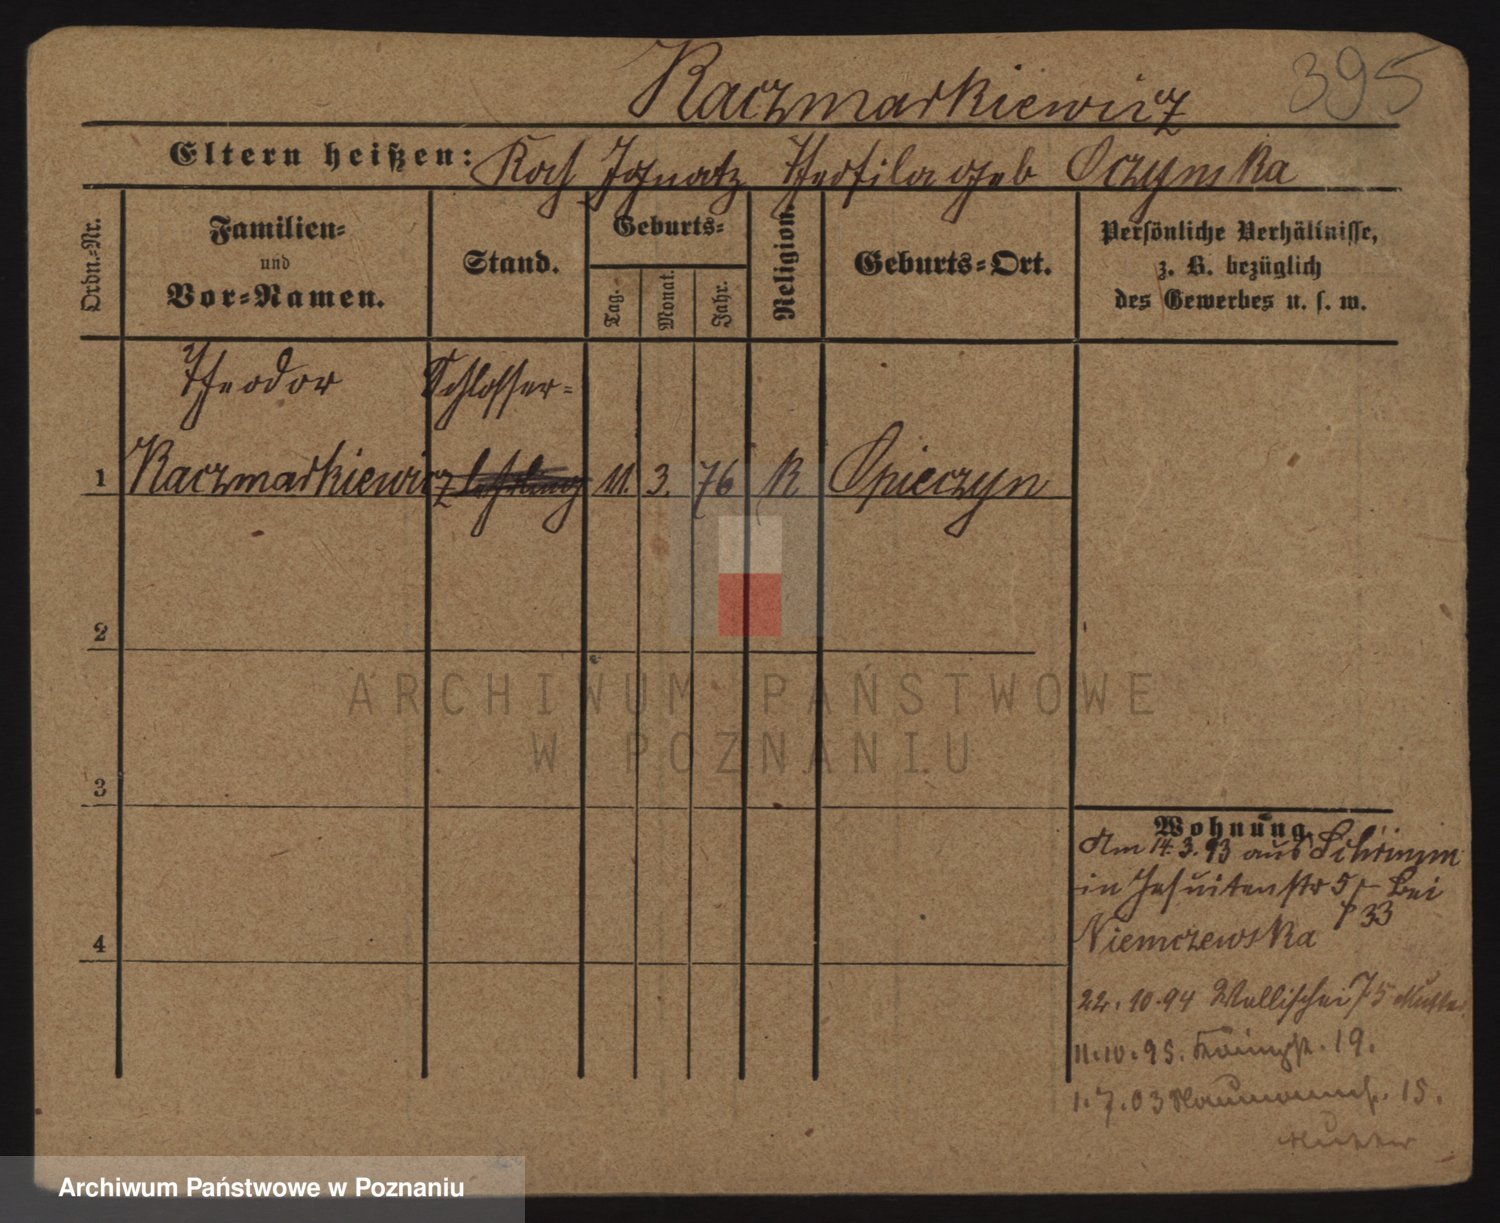 Kaczmarkiewicz 395
Eltern heißen: Koch Ignatz Theofila geb Oczynska
Ordn.-Nr.
Familien-
und
Vor-Namen.
Stand.
Geburts-
Tag.
Monat.
Jahr.
Religion.
Geburts-Ort.
Persönliche Verhältnisse,
z. B. bezüglich
des Gewerbes u. s. w.
Theodor Schlosser-
1 Kaczmarkiewicz lehrling 11. 3. 76 K Spieczyn
2
3
4
Wohnung
Am 14.3.93 aus Schrimm
in Jesuitenstr 5 bei
P 33
Niemczewska
22.10.94 Wallischei 75 Mutter
11.10.95. 19.
1.7.03 Naumannstr. 15.
Mutter
ARCHIWUM PAŃSTWOWE
W POZNANIU
Archiwum Państwowe w Poznaniu